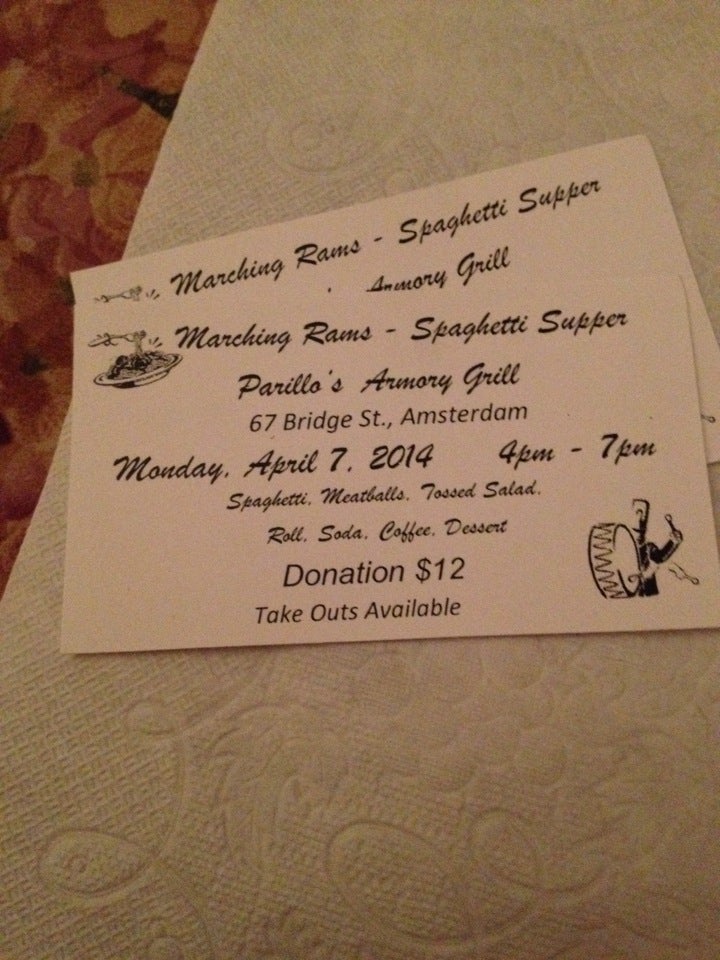 Marching Rams - Spaghetti Supper
Armory Grill
Marching Rams - Spaghetti Supper
Parillo's Armory Grill
67 Bridge St., Amsterdam
Monday, April 7, 2014 4pm - 7pm
Spaghetti, Meatballs, Tossed Salad,
Roll, Soda, Coffee, Dessert
Donation $12
Take Outs Available